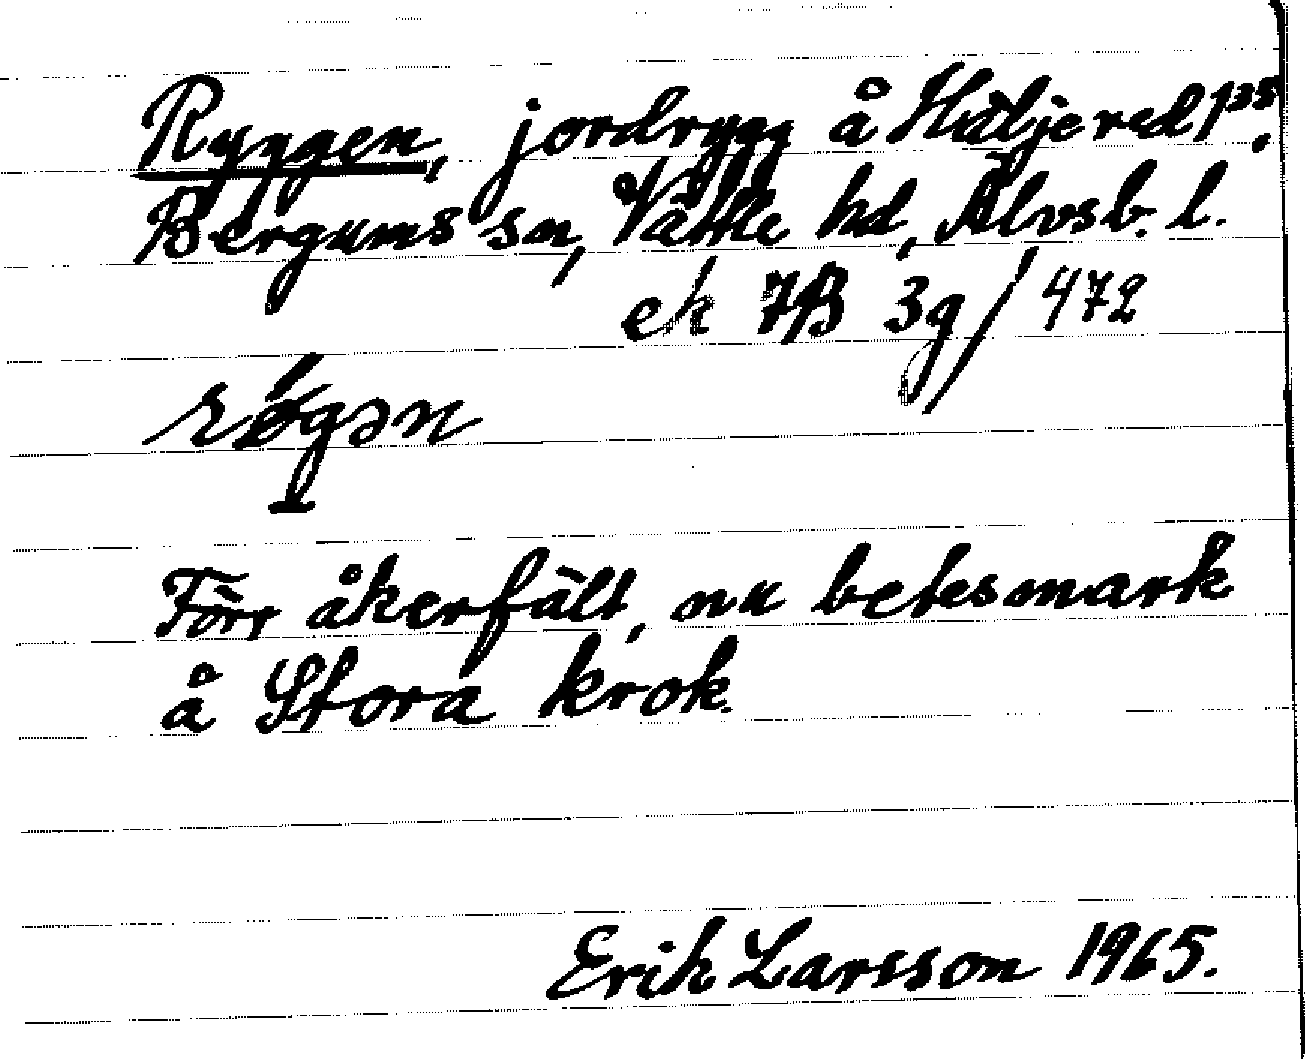 Ryggen, jordrygg å Hultjered 1²⁵,
Bergums sn, Vättle hd, Älvsb. l.
ek 7B 3g/472
røgən
Förr åkerfält, nu betesmark
å Stora krok.
Erik Larsson 1965.